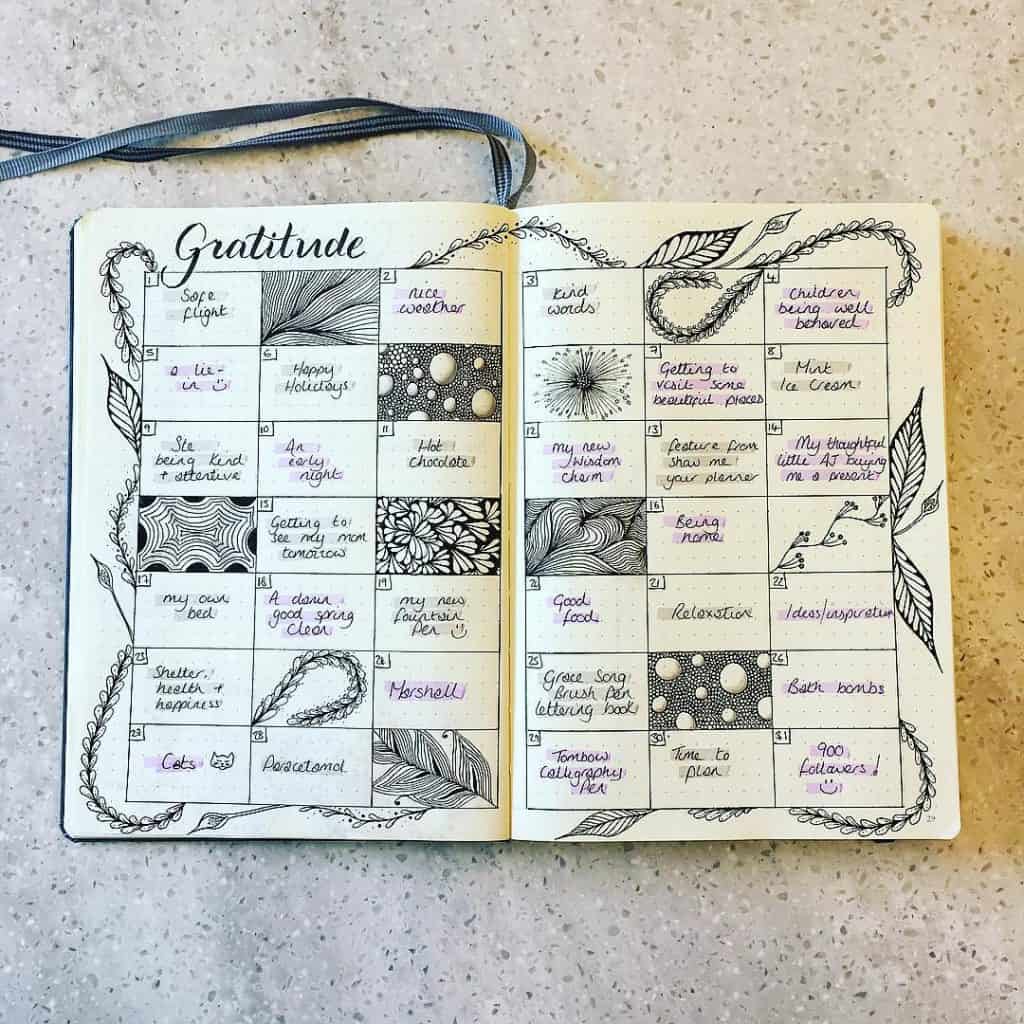 Gratitude
1
Safe
flight
2
nice
weather
3
Kind
words
4
Children
being well
behaved
5
a lie-
in
6
Happy
Holidays
7
Getting to
visit some
beautiful places
8
Mint
Ice Cream
9
Ste
being kind
+ attentive
10
An
early
night
11
Hot
chocolate
12
my new
Wisdom
charm
13
feature from
show me
your planner
14
My thoughtful
little AJ buying
me a present
15
Getting to
see my mom
tomorrow
16
Being
home
17
my own
bed
18
A damn
good spring
clean
19
my new
fountain
Pen
Good
food
21
Relaxation
22
Ideas/inspiration
23
Shelter,
health +
happiness
24
Marshall
25
Grace Song
Brush Pen
lettering book
26
Bath bombs
27
Cats
28
Paracetamol
29
Tombow
Calligraphy
Pen
30
Time to
plan
31
900
followers!
29